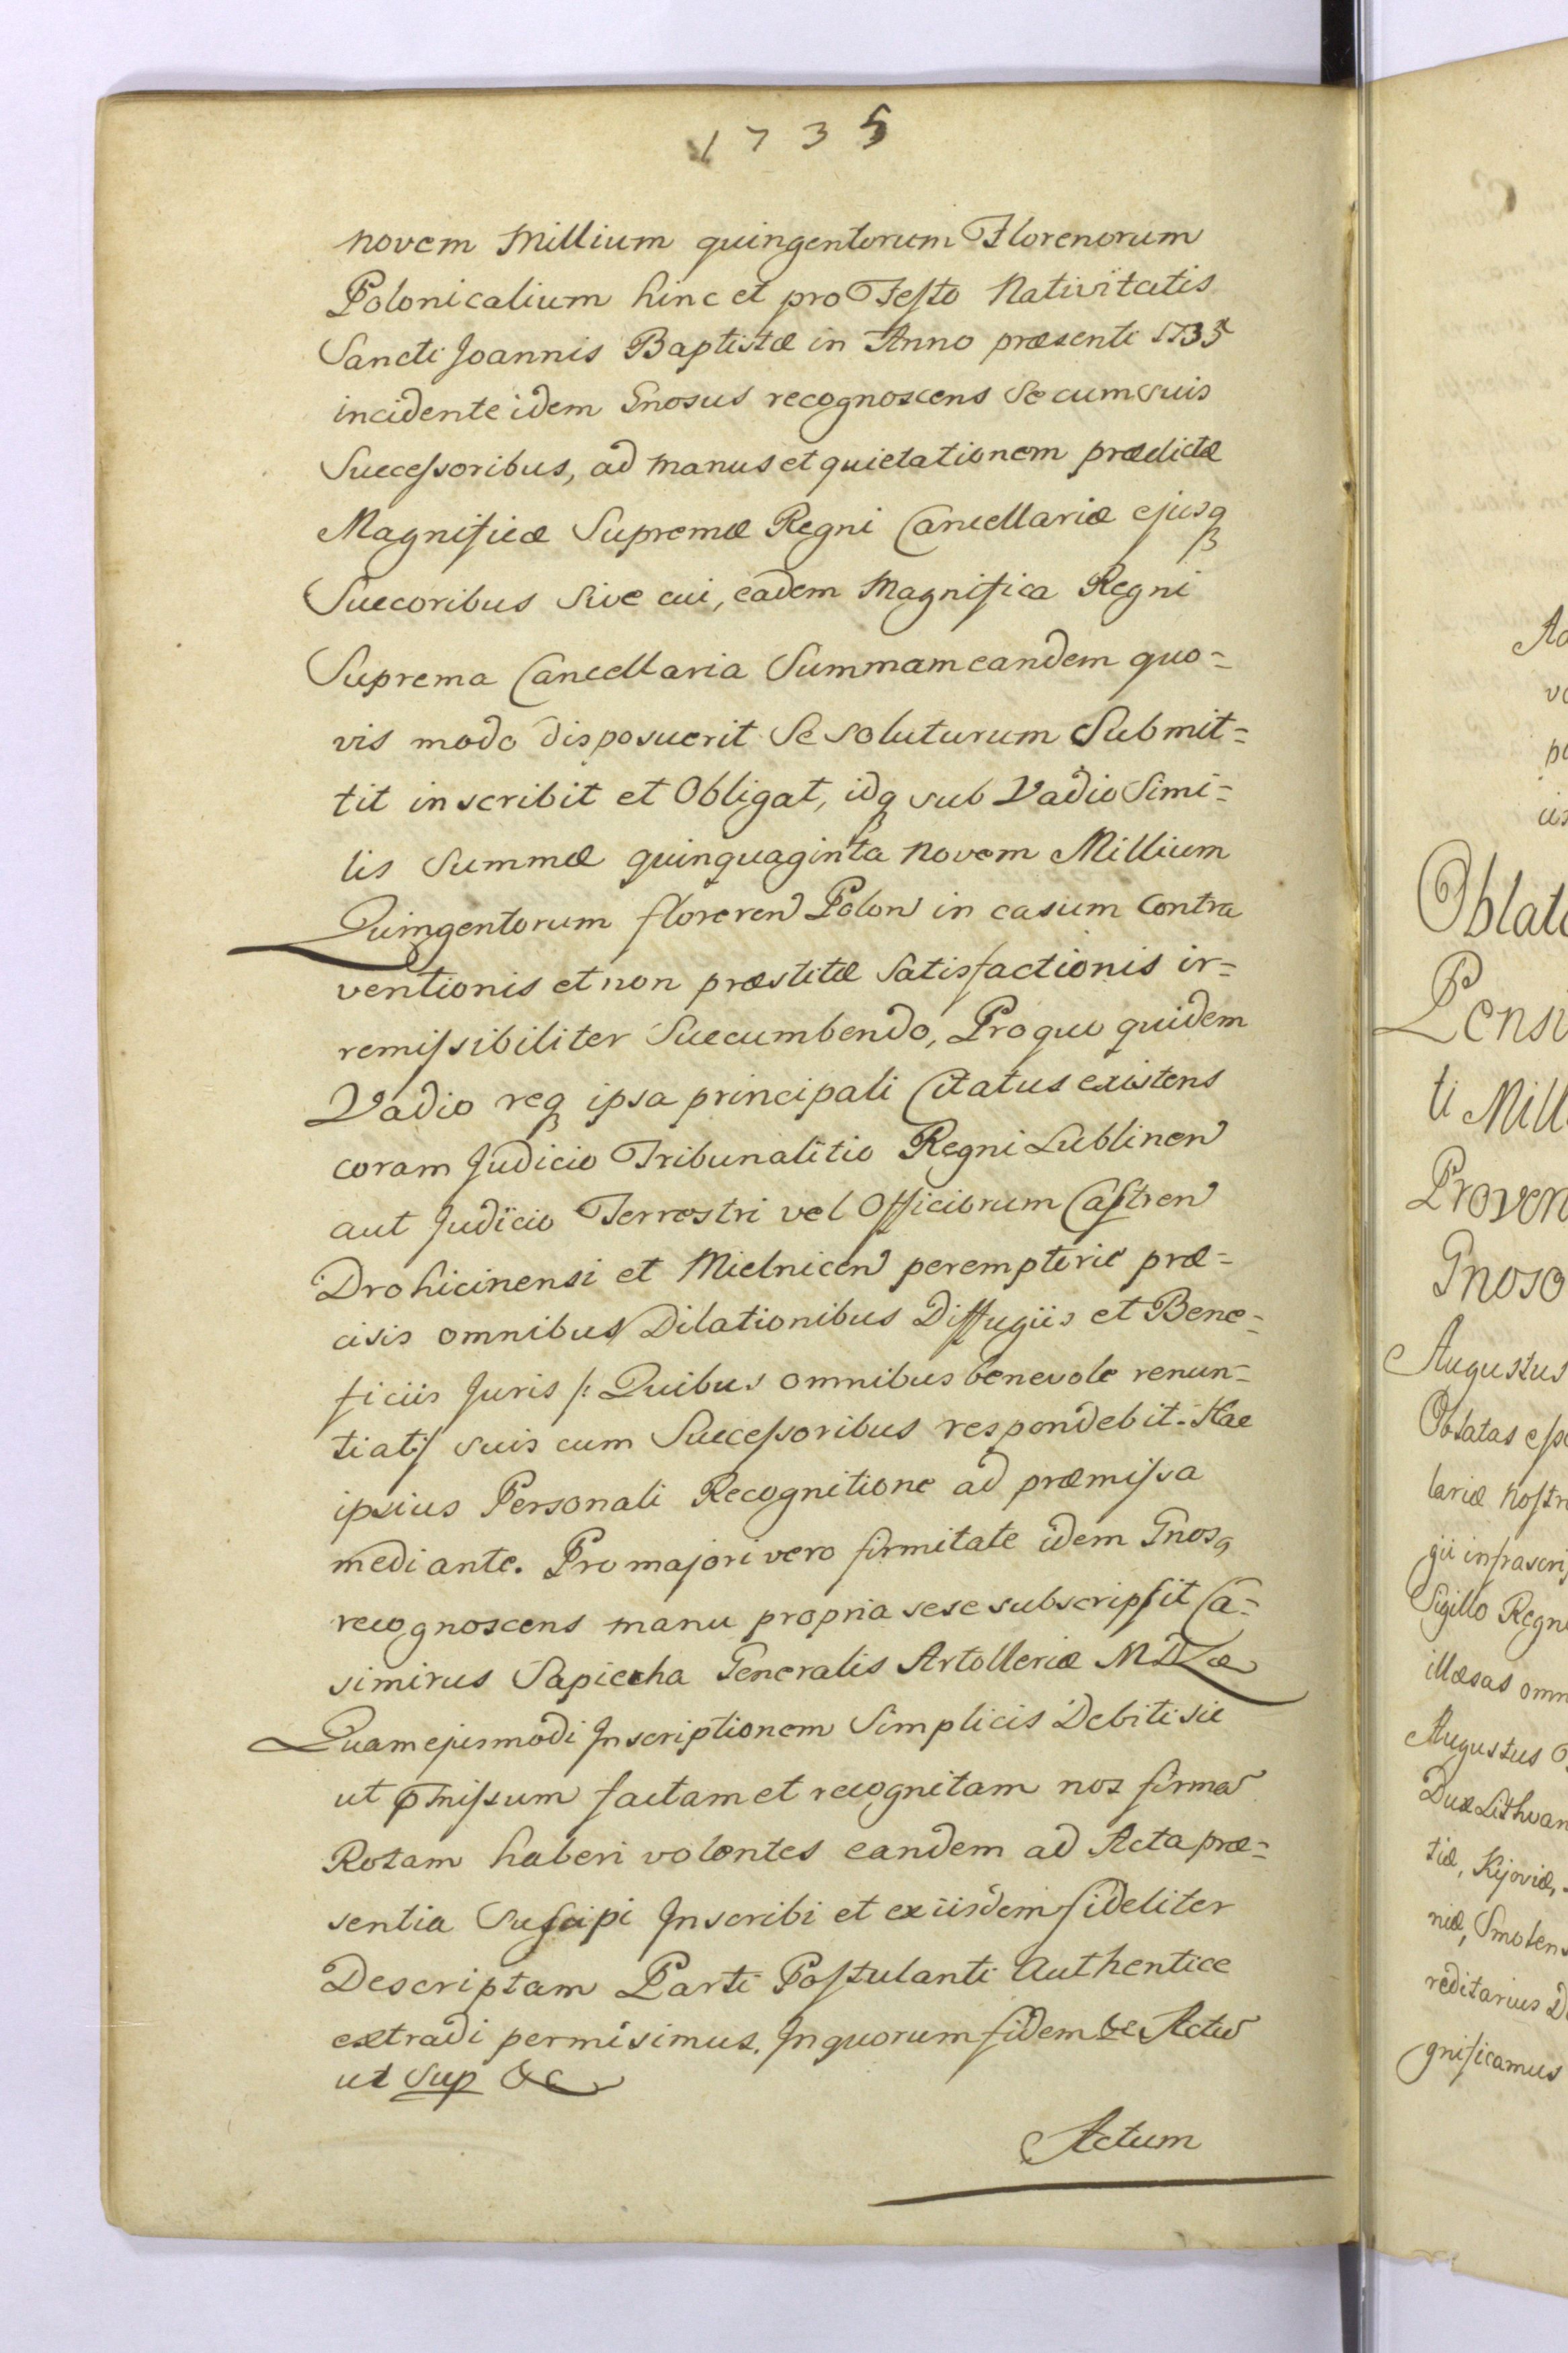 1735
novem Millium quingentorum Florenorum
Polonicalium hinc et pro Festo Nativitatis
Sancti Joannis Baptistæ in Anno præsenti 1735
incidente idem Gnosus recognoscens Se cum suis
Successoribus, ad manus et quietationem prædictæ
Magnificæ Supremæ Regni Cancellariæ ejusq
Succoribus Sive cui, eadem Magnifica Regni
Suprema Cancellaria Summam eandem quo=
vis modo disposuerit Se soluturum Submit=
tit inscribit et Obligat, idq sub Vadio Simi=
lis Summæ quinquaginta Novem Millium
Quingentorum floreren Polon in casum Contra
ventionis et non præstitæ Satisfactionis ir=
remissibiliter Succumbendo, Pro quo quidem
Vadio req ipsa principali Citatus existens
coram Judicio Tribunalitio Regni Lublinen
aut Judicio Terrestri vel Officiorum Castren
Drohicinensi et Mielnicen peremptorie præ=
cisis omnibus Dilationibus Diffugiis et Bene=
ficiis Juris /: Quibus omnibus benevole renun=
tiat:/ suis cum Successoribus respondebit. Hac
ipsius Personali Recognitione ad præmissa
mediante. Pro majori vero firmitate idem Gnos9
recognoscens manu propria sese subscripsit Ca=
simirus Sapiecha Generalis Artolleriæ MDLæ
Quam ejusmodi Inscriptionem Simplicis Debiti sic
ut missum factam et recognitam nos firma
Rotam haberi volentes eandem ad Acta præ=
sentia Suscipi Inscribi et ex iisdem fideliter
Descriptam Parti Postulanti Authentice
extradi permisimus. In quorum fidem &c Actu
ut Sup &c
Actum
Ao
vo
Oblat
Pensi
ti Mill
Proven
Gnoso
Augustus
Oblatas esse
lariæ nostr
gii infrascri
Sigillo Regn
illæsas omn
Augustus
Dux Lithvan
tiæ, Kijoviæ,
niæ, Smolens
reditarius D
gnificamus